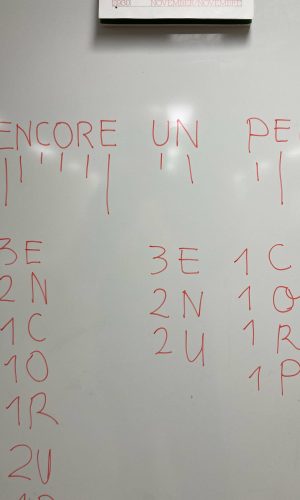 NOVEMBER/NOVEMBRE
ENCORE UN PE
3E
2N
1C
1O
1R
2U
3E
2N
2U
1C
1O
1R
1P